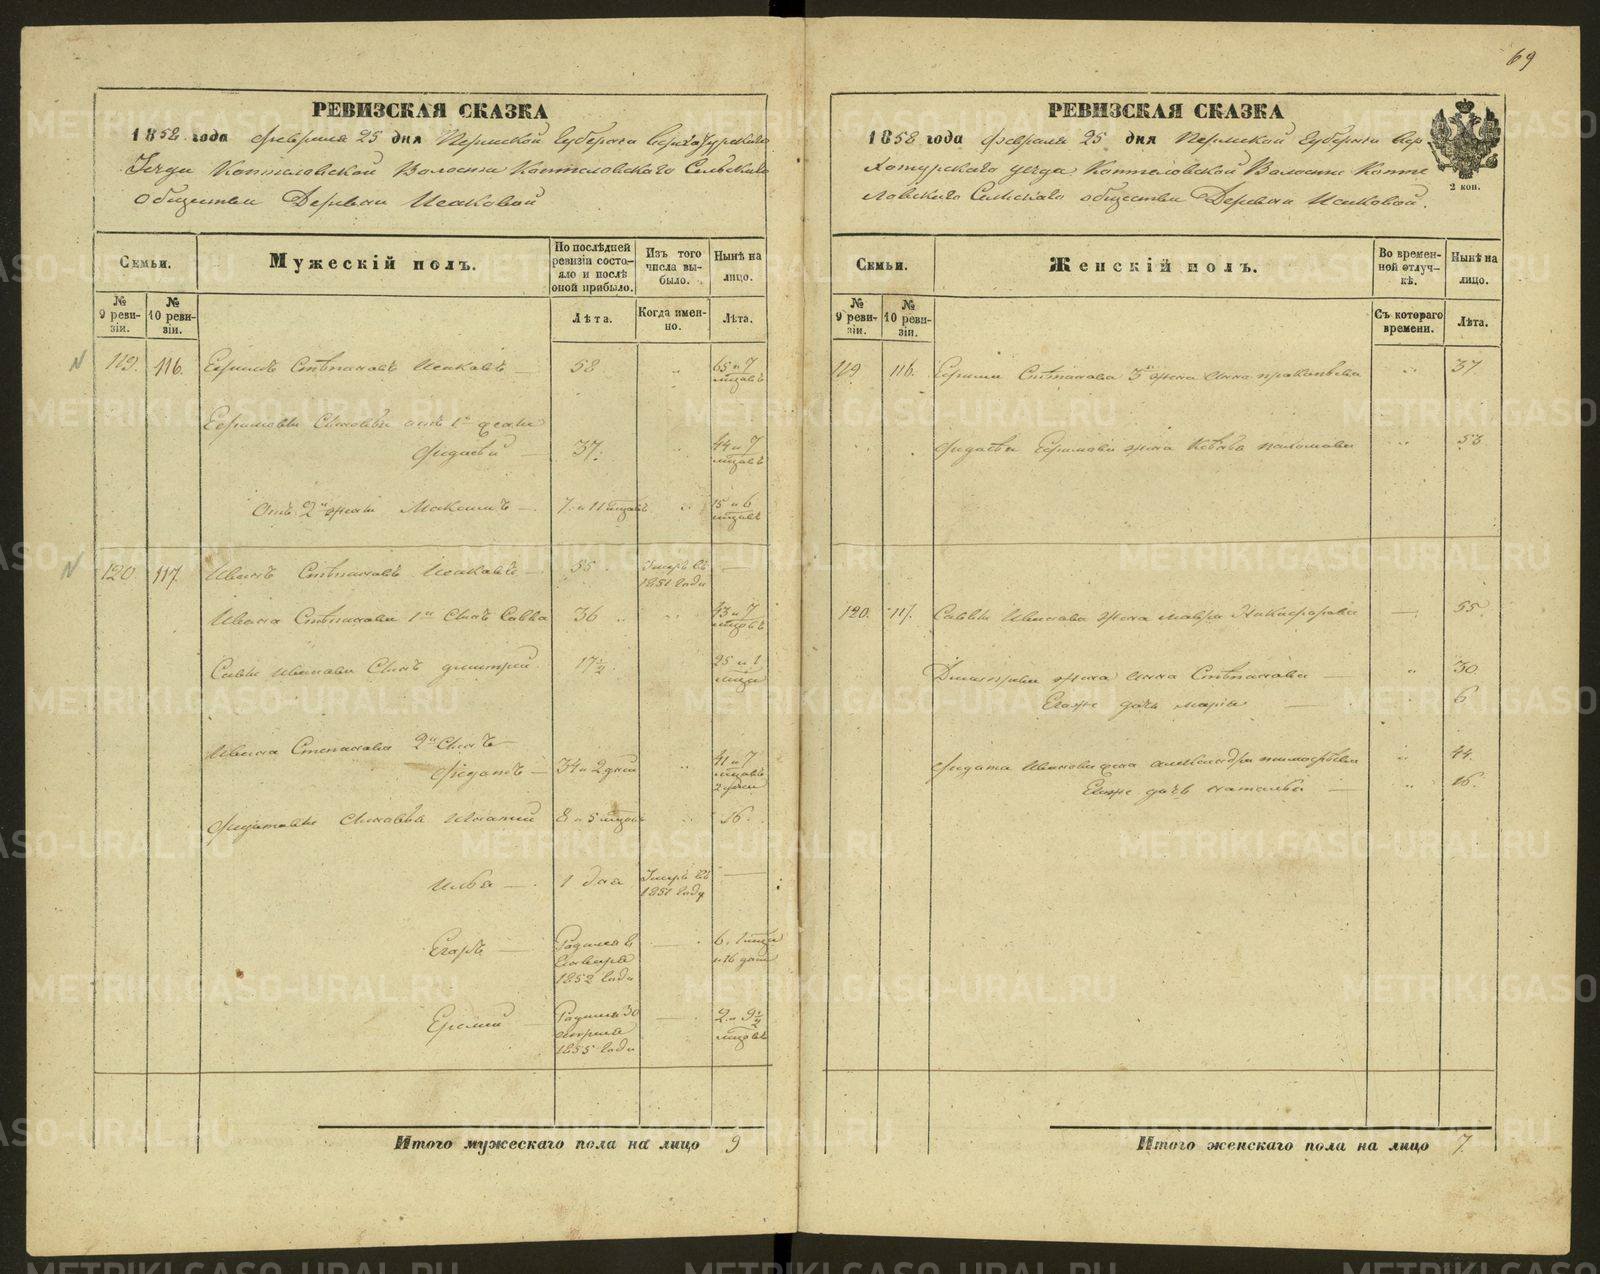 69
РЕВИЗСКАЯ СКАЗКА
1858 года февраля 25 дня Пермской Губернiи Верхотурскаго
Уезда Коптеловской Волости Коптеловскаго Сельскаго
общества Деревни Исаковой
Семьи.
Мужескій полъ.
По послѣдней ревизіи состояло и послѣ оной прибыло.
Изъ того числа выбыло.
Нынѣ на лицо.
№ 9 ревизіи.
№ 10 ревизіи.
Лѣта.
Когда именно.
Лѣта.
119. 116. Ефимъ Степановъ Исаковъ — 58 " 65 и 7 мцовъ
Ефимовы Сыновья отъ 1й жены
Фадѣй — 37. " 44 и 7 мцовъ
Отъ 2й жены Максимъ — 7 и 11 мцовъ " 15 и 6 мцовъ
120. 117. Иванъ Степановъ Исаковъ — 55 Умеръ въ 1851 году —
Ивана Степанова 1й Сынъ Савва 36 " 43 и 7 мцовъ
Савы Иванова Сынъ Дмитрий 17 1/2 25 и 1 мцъ
Ивана Степанова 2й Сынъ
Федотъ — 34 и 2 дни " 41 и 7 мцовъ 2 дни
Федотовы Сыновья Игнатий 8 и 5 мцовъ " 16.
Илья — 1 дня Умеръ въ 1851 году —
Егоръ — Родился в 1852 года — 6. 1 мца и 16 дней
Еремий — Родился 30 апреля 1855 года — 2. и 9 1/2 мцовъ
Итого мужескаго пола на лицо 9
РЕВИЗСКАЯ СКАЗКА
1858 года февраля 25 дня Пермской Губернiи Вер
хотурского уезда Коптеловской Волости Копте
ловскаго Сельскаго общества Деревни Исаковой.
2 коп.
Семьи.
Женскій полъ.
Во временной отлучкѣ.
Нынѣ на лицо.
№ 9 ревизіи.
№ 10 ревизіи.
Съ котораго времени.
Лѣта.
119 116. Ефима Степанова 3я жена Анна Прокопьева " 37
Фадѣя Ефимова жена " 53
120. 117. Саввы Иванова жена Мавра Никифорова — 55.
Дмитрия жена Анна Степанова — " 30
Егоже дочь Марiя — " 6
Федота Иванова жена Александра Тимофѣева " 44.
Егоже дочь Наталья — " 16.
Итого женскаго пола на лицо 7.
METRIKI.GASO-URAL.RU